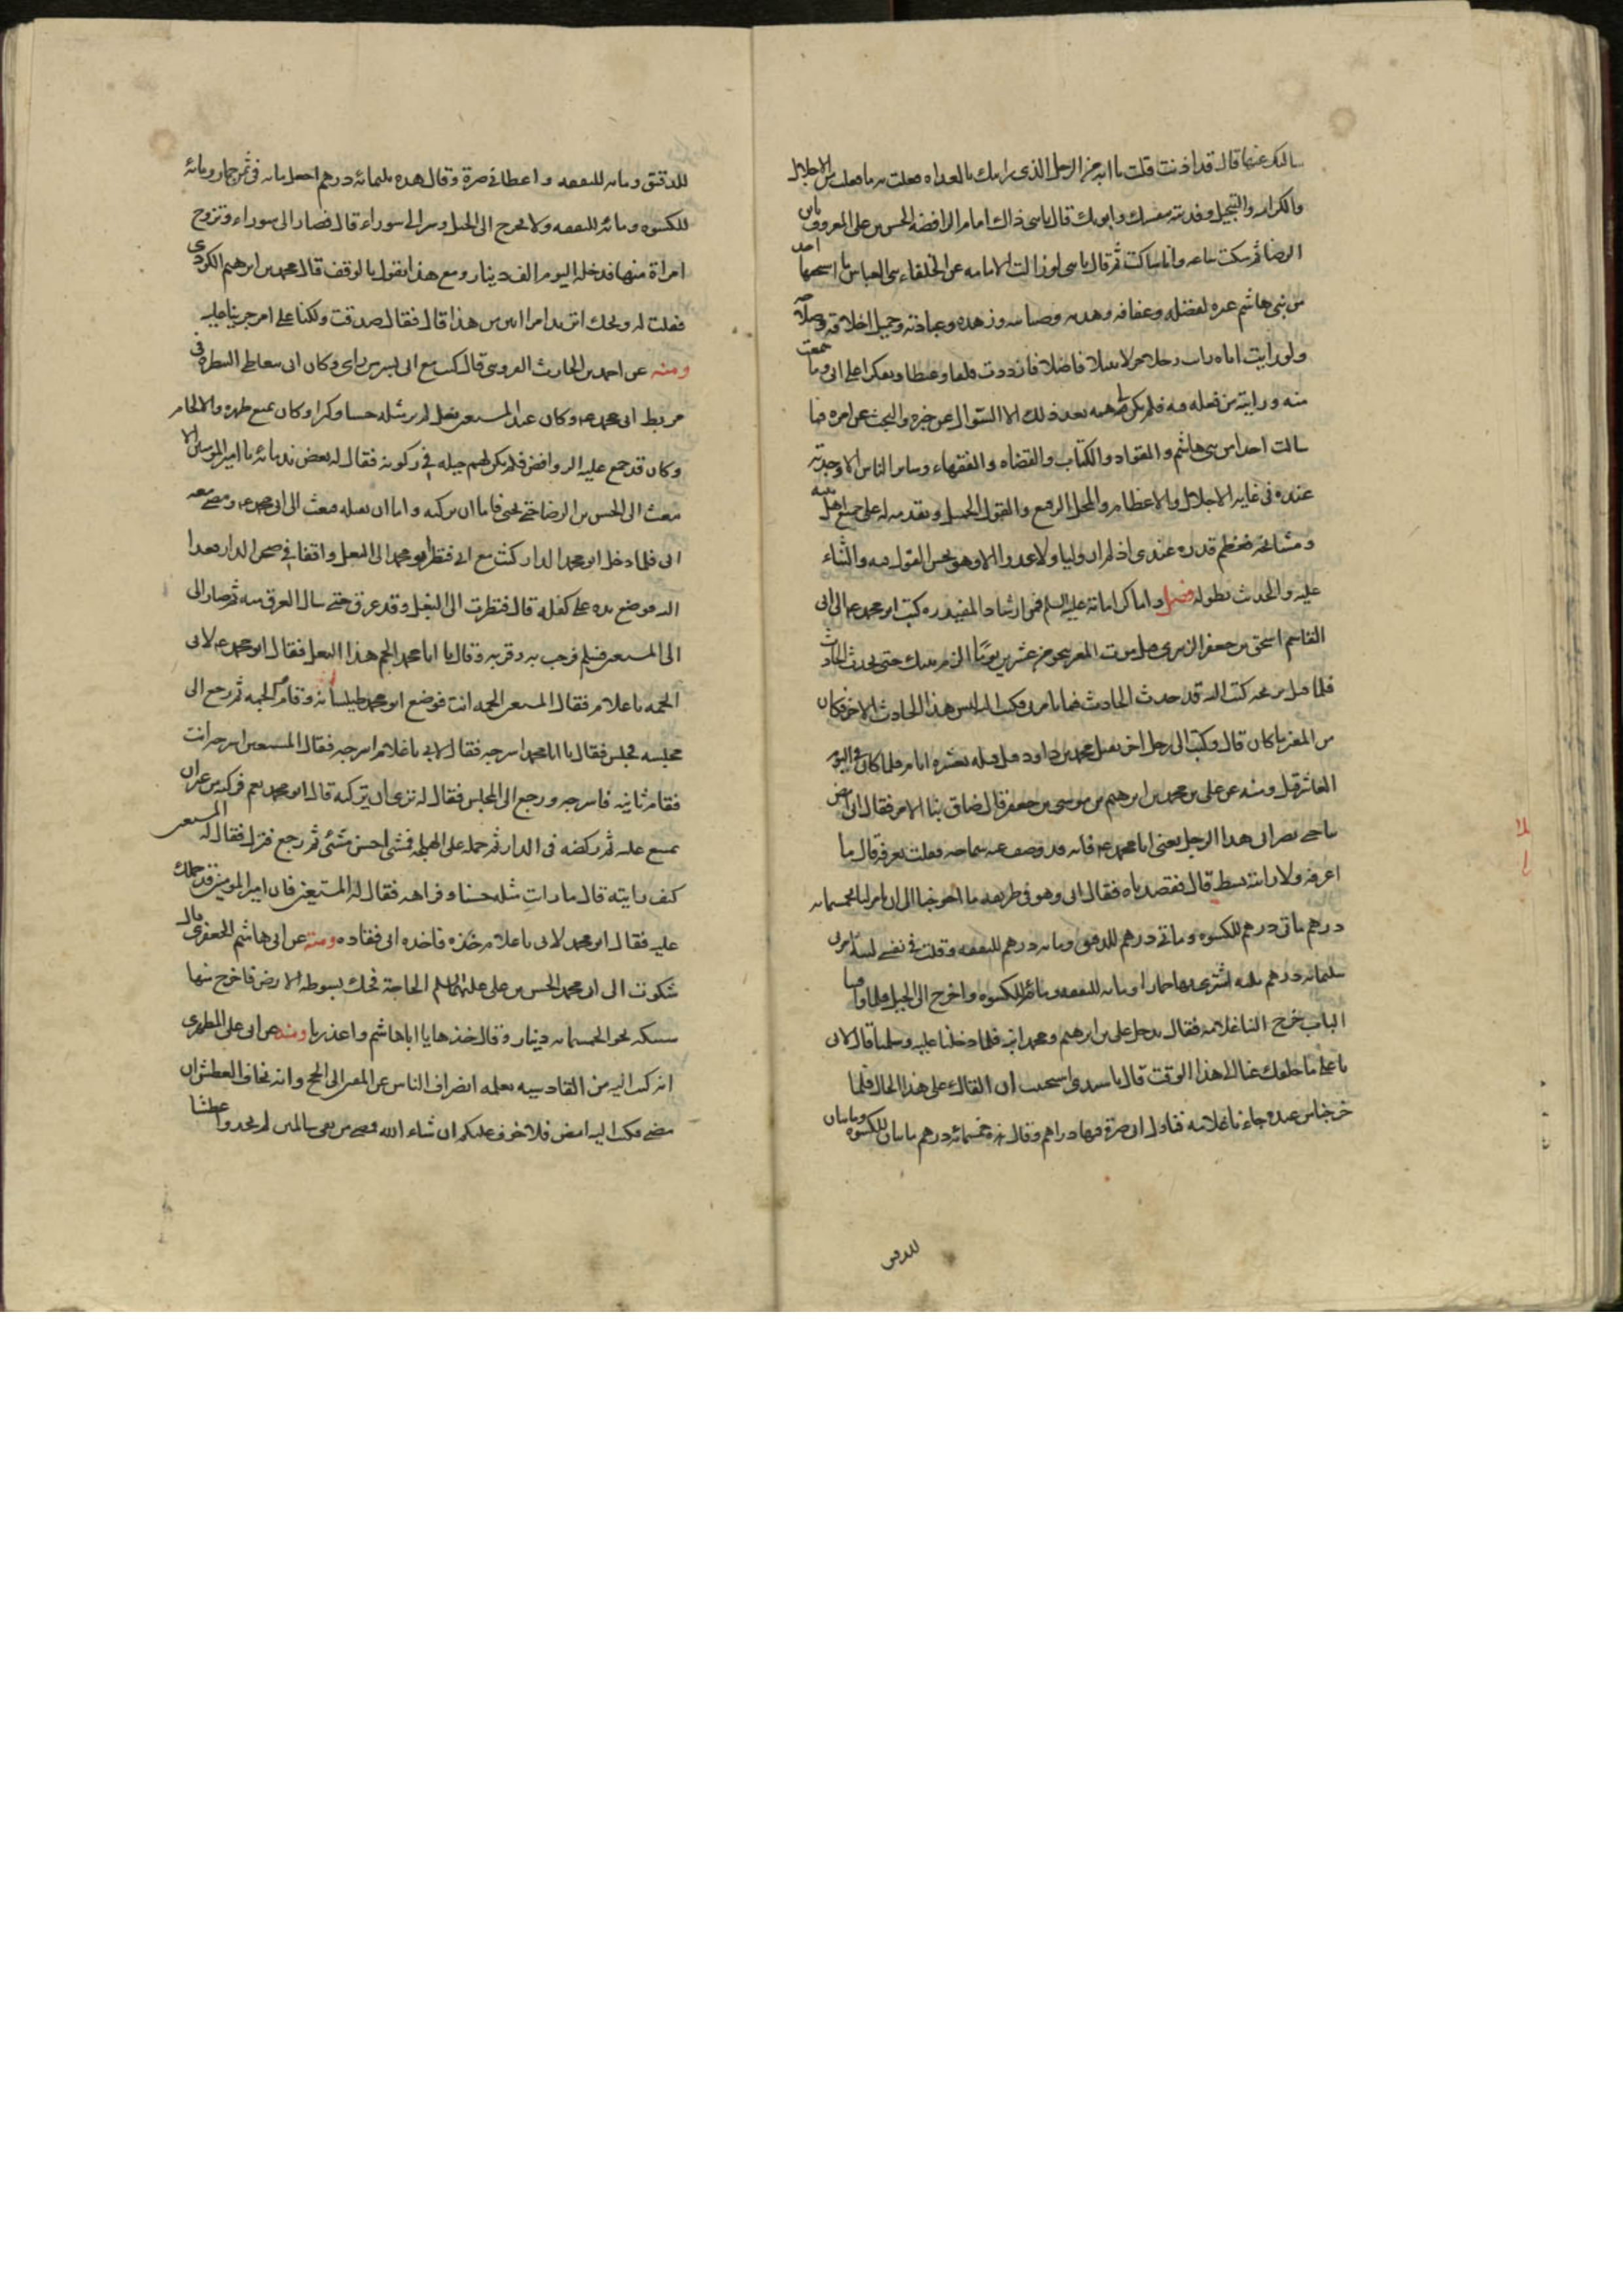 سالتك عنها قال قد اذنت قلت يا ابه من الرجل الذى رايتك بالغداه فعلت به ما فعلت من الاجلال
والكرامه والتبجيل وفديته بنفسك وابويك قال يا بنى ذاك امام الرافضه الحسن بن على المعروف بابن
الرضا ثم سكت ساعه وانا ساكت ثم قال يا بنى لو زالت الامامه عن الخلفاء بنى العباس ما استحقها احد
من بنى هاشم غيره لفضله وعفافه وهديه وصيانته وزهده وعبادته وجميل اخلاقه وصلاحه
ولو رايت اباه رايت رجلا جزلا نبيلا فاضلا فازددت قلقا وغيظا وتفكرا على ابى وما سمعت
منه ورايته من فعله به فلم يكن لى همه بعد ذلك الا السوال عن خبره والبحث عن امره فما
سالت احدا من بنى هاشم والقواد والكتاب والقضاه والفقهاء وساير الناس الا وجدته
عنده فى غايه الاجلال والاعظام والمحل الرفيع والقول الجميل وتقديمه له على جميع اهل بيته
ومشايخه فعظم قدره عندى اذ لم ار له وليا ولا عدوا الا وهو يحسن القول فيه والثناء
عليه والحديث بطوله فصل واما ذكر امامته عليه السلم فمن ارشاد المفيد ره كتب ابو محمد عم الى ابى
القاسم اسحق بن جعفر الزبيرى قبل موت المعتز بنحو من عشرين يوما الزم بيتك حتى يحدث الحادث
فلما قتل بريحه كتب اليه قد حدث الحادث فما تامرنى فكتب اليه ليس هذا الحادث الاخر فكان
من المعتز ما كان قال وكتب الى رجل اخر بقتل محمد بن داود قبل قتله بعشره ايام فلما كان فى اليوم
العاشر قتل ومنه عن على بن محمد بن ابرهيم بن موسى بن جعفر قال ضاق بنا الامر فقال ابى امض
بنا حتى نصير الى هذا الرجل يعنى ابا محمد عم فانه قد وصف عنه سماحه فقلت تعرفه قال ما
اعرفه ولا رايته قط قال فقصدناه فقال ابى وهو فى طريقه ما احوجنا الى ان يامر لنا بخمسمايه
درهم ماتى درهم للكسوه وماتى درهم للدقيق ومايه درهم للنفقه وقلت فى نفسى ليته امر لى
بثلثمايه درهم مايه اشترى بها حمارا ومايه للنفقه ومائه للكسوه واخرج الى الجبل فلما وافينا
الباب خرج الينا غلامه فقال يدخل على بن ابرهيم ومحمد ابنه فلما دخلنا عليه وسلمنا قال لابى
يا على ما خلفك عنا الى هذا الوقت قال يا سيدى استحييت ان القاك على هذا الحال فلما
خرجنا من عنده جاءنا غلامه فناول ابى صرة فيها دراهم وقال هذه خمسمائه درهم مايتان للكسوه ومايتان
للدقيق
للدقيق ومايه للنفقه واعطانى صرة وقال هذه ثلثمائه درهم اجعل مايه فى ثمن حمار ومائه
للكسوه ومائه للنفقه ولا تخرج الى الجبل وسر الى سوراء قال فصار الى سوراء وتزوج
امراة منها فدخله اليوم الف دينار ومع هذا يقول بالوقف قال محمد بن ابرهيم الكردى
فقلت له ويحك اتريد امرا ابين من هذا قال فقال صدقت ولكنا على امر جرينا عليه
ومنه عن احمد بن الحارث القزوينى قال كنت مع ابى بسر من راى وكان ابى يتعاطى البيطره فى
مربط ابى محمد عم وكان عند المستعين بغل لم ير مثله حسنا وكبرا وكان يمنع ظهره والالجام
وكان قد جمع عليه الرواض فلم يكن لهم حيله فى ركوبه فقال له بعض ندمائه يا امير المومنين الا
تبعث الى الحسن بن الرضا حتى يجئ فاما ان يركبه واما ان يقتله فبعث الى ابى محمد عم ومضى معه
ابى فلما دخل ابو محمد الدار كنت مع ابى فنظر ابو محمد الى البغل واقفا فى صحن الدار فعدا
اليه فوضع يده على كفله قال فنظرت الى البغل وقد عرق حتى سال العرق منه ثم صار الى
الى المستعين فسلم فرحب به وقربه وقال يا ابا محمد الجم هذا البغل فقال ابو محمد عم لابى
الجمه يا غلام فقال المستعين الجمه انت فوضع ابو محمد طيلسانه وقام فالجمه ثم رجع الى
مجلسه فجلس فقال يا ابا محمد اسرجه فقال لابى يا غلام اسرجه فقال المستعين اسرجه انت
فقام ثانيه فاسرجه ورجع الى المجلس فقال له ترى ان تركبه قال ابو محمد نعم فركبه من غير ان
يمتنع عليه ثم ركضه فى الدار ثم حمله على الهملجه فمشى احسن مشى ثم رجع فنزل فقال له المستعين
كيف رايته قال ما رايت مثله حسنا وفراهه فقال له المستعين فان امير المومنين قد حملك
عليه فقال ابو محمد لابى يا غلام خذه فاخذه ابى فقاده ومنه عن ابى هاشم الجعفرى قال
شكوت الى ابى محمد الحسن بن على عليهما السلم الحاجة فحك بسوطه الارض فاخرج منها
سبيكه نحو الخمسمايه دينار وقال خذها يا ابا هاشم واعذرنا ومنه عن ابى على المطهرى
انه كتب اليه من القادسيه يعلمه انصراف الناس عن المضى الى الحج وانه يخاف العطش ان
مضى فكتب اليه امض فلا خوف عليكم ان شاء الله فمضى من بقى سالمين لم يجدوا عطشا